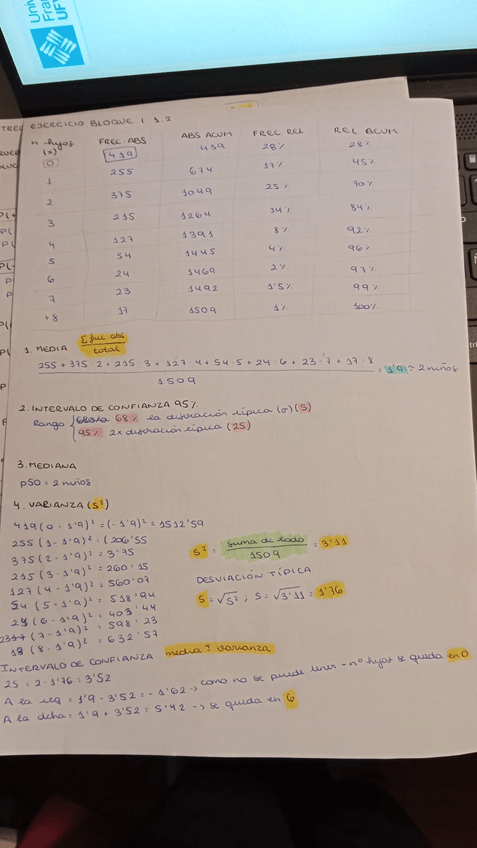 Univ
Fran
UFV
EJERCICIO BLOQUE 1 1.2
nº hijos (x) FREC. ABS ABS ACUM FREC REL REL ACUM
0 419 419 28% 28%
1 255 674 17% 45%
2 375 1049 25% 70%
3 215 1264 14% 84%
4 127 1391 8% 92%
5 54 1445 4% 96%
6 24 1469 2% 97%
7 23 1492 1'5% 99%
+8 17 1509 1% 100%
1. MEDIA Σ frec abs / total
255 + 375·2 + 215·3 + 127·4 + 54·5 + 24·6 + 23·7 + 17·8 = 1'9 ≃ 2 niños
1509
2. INTERVALO DE CONFIANZA 95%
Rango 68% la desviación típica (σ) (S)
95% 2x desviación típica (2S)
3. MEDIANA
p50 = 2 niños
4. VARIANZA (S²)
419 (0 - 1'9)² = (-1'9)² = 1512'59
255 (1 - 1'9)² = 206'55
375 (2 - 1'9)² = 3'75
215 (3 - 1'9)² = 260'15
127 (4 - 1'9)² = 560'07
54 (5 - 1'9)² = 518'94
24 (6 - 1'9)² = 403'44
23 (7 - 1'9)² = 598'23
(8 - 1'9)² = 632'57
S² = suma de todo / 1509 = 3'11
DESVIACIÓN TÍPICA
S = √S² ; S = √3'11 = 1'76
INTERVALO DE CONFIANZA media ± varianza
2S = 2·1'76 = 3'52
A la izq = 1'9 - 3'52 = -1'62 -> como no se puede tener - nº hijos se queda en 0
A la dcha = 1'9 + 3'52 = 5'42 -> se queda en 6